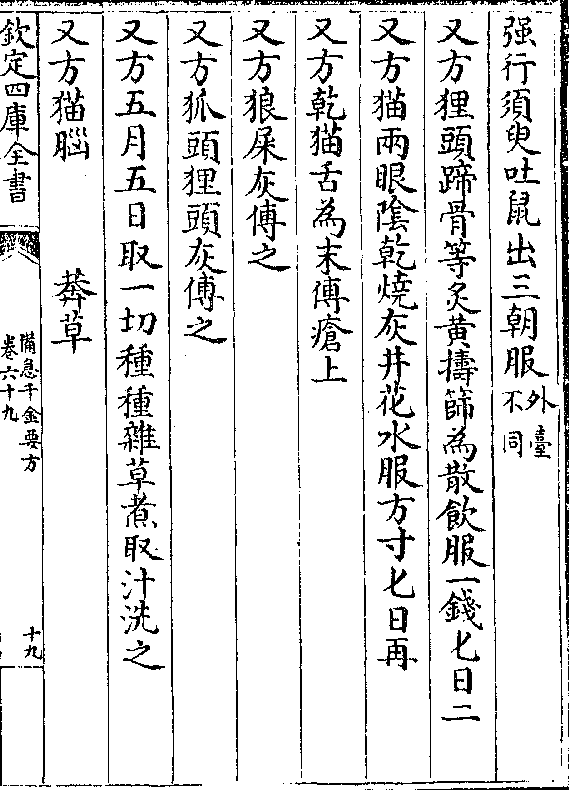 强行須臾吐鼠出三朝服外臺不同
又方狸頭蹄骨等炙黄擣篩為散飲服一錢匕日二
又方猫兩眼陰乾燒灰井花水服方寸匕日再
又方乾猫舌為末傅瘡上
又方狼屎灰傅之
又方狐頭狸頭灰傅之
又方五月五日取一切種種雜草煮取汁洗之
又方猫腦　　莾草
欽定四庫全書
備急千金要方
卷六十九
十九